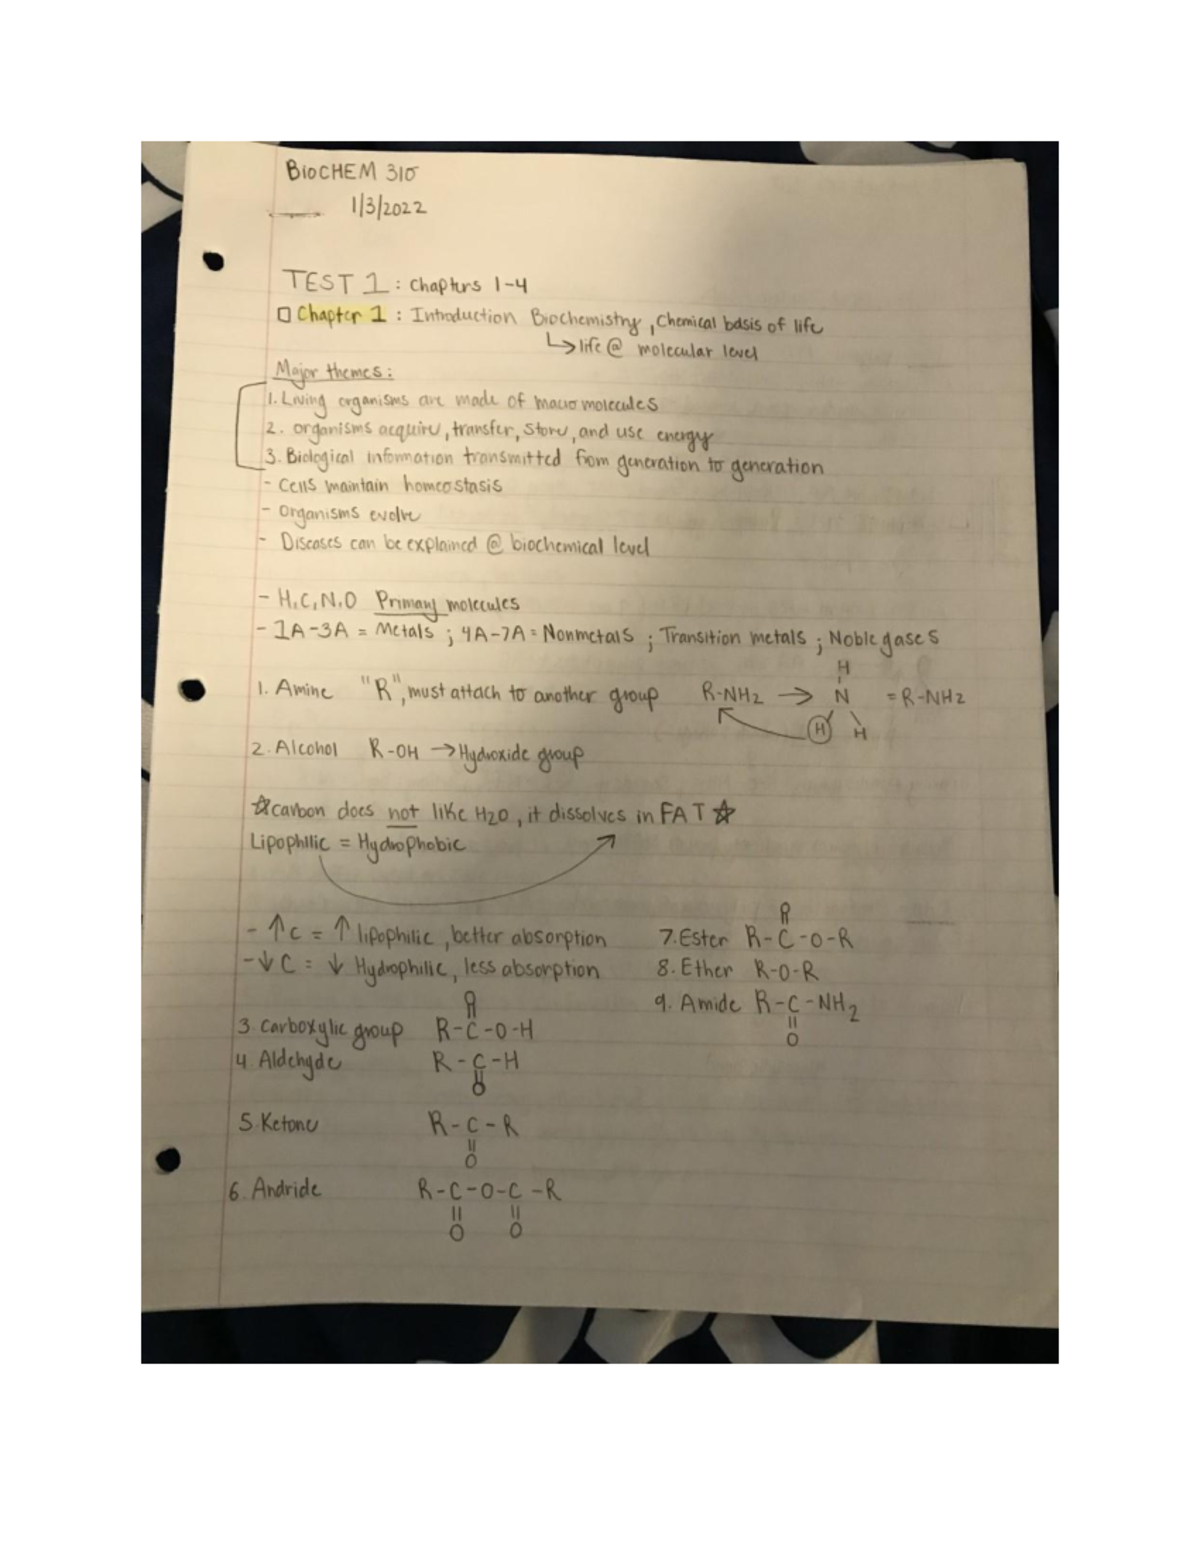 BIOCHEM 310
1/3/2022
TEST 1 : Chapters 1-4
□ Chapter 1 : Introduction Biochemistry, Chemical basis of life
↳ life @ molecular level
Major themes:
1. Living organisms are made of macromolecules
2. organisms acquire, transfer, store, and use energy
3. Biological information transmitted from generation to generation
- Cells maintain homeostasis
- Organisms evolve
- Diseases can be explained @ biochemical level
- H, C, N, O Primary molecules
- 1A-3A = Metals ; 4A-7A = Nonmetals ; Transition metals ; Noble gases
H
1. Amine "R", must attach to another group R-NH2 → N = R-NH2
H H
2. Alcohol R-OH → Hydroxide group
☆ carbon does not like H2O, it dissolves in FAT ☆
Lipophilic = Hydrophobic
- ↑ C = ↑ lipophilic, better absorption
- ↓ C = ↓ Hydrophilic, less absorption
O
||
3. Carboxylic group R-C-O-H
4. Aldehyde R-C-H
||
O
5. Ketone R-C-R
||
O
6. Andride R-C-O-C-R
|| ||
O O
O
||
7. Ester R-C-O-R
8. Ether R-O-R
9. Amide R-C-NH2
||
O